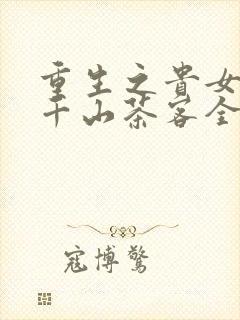 重生之貴女
千山茶客全
寇博驚